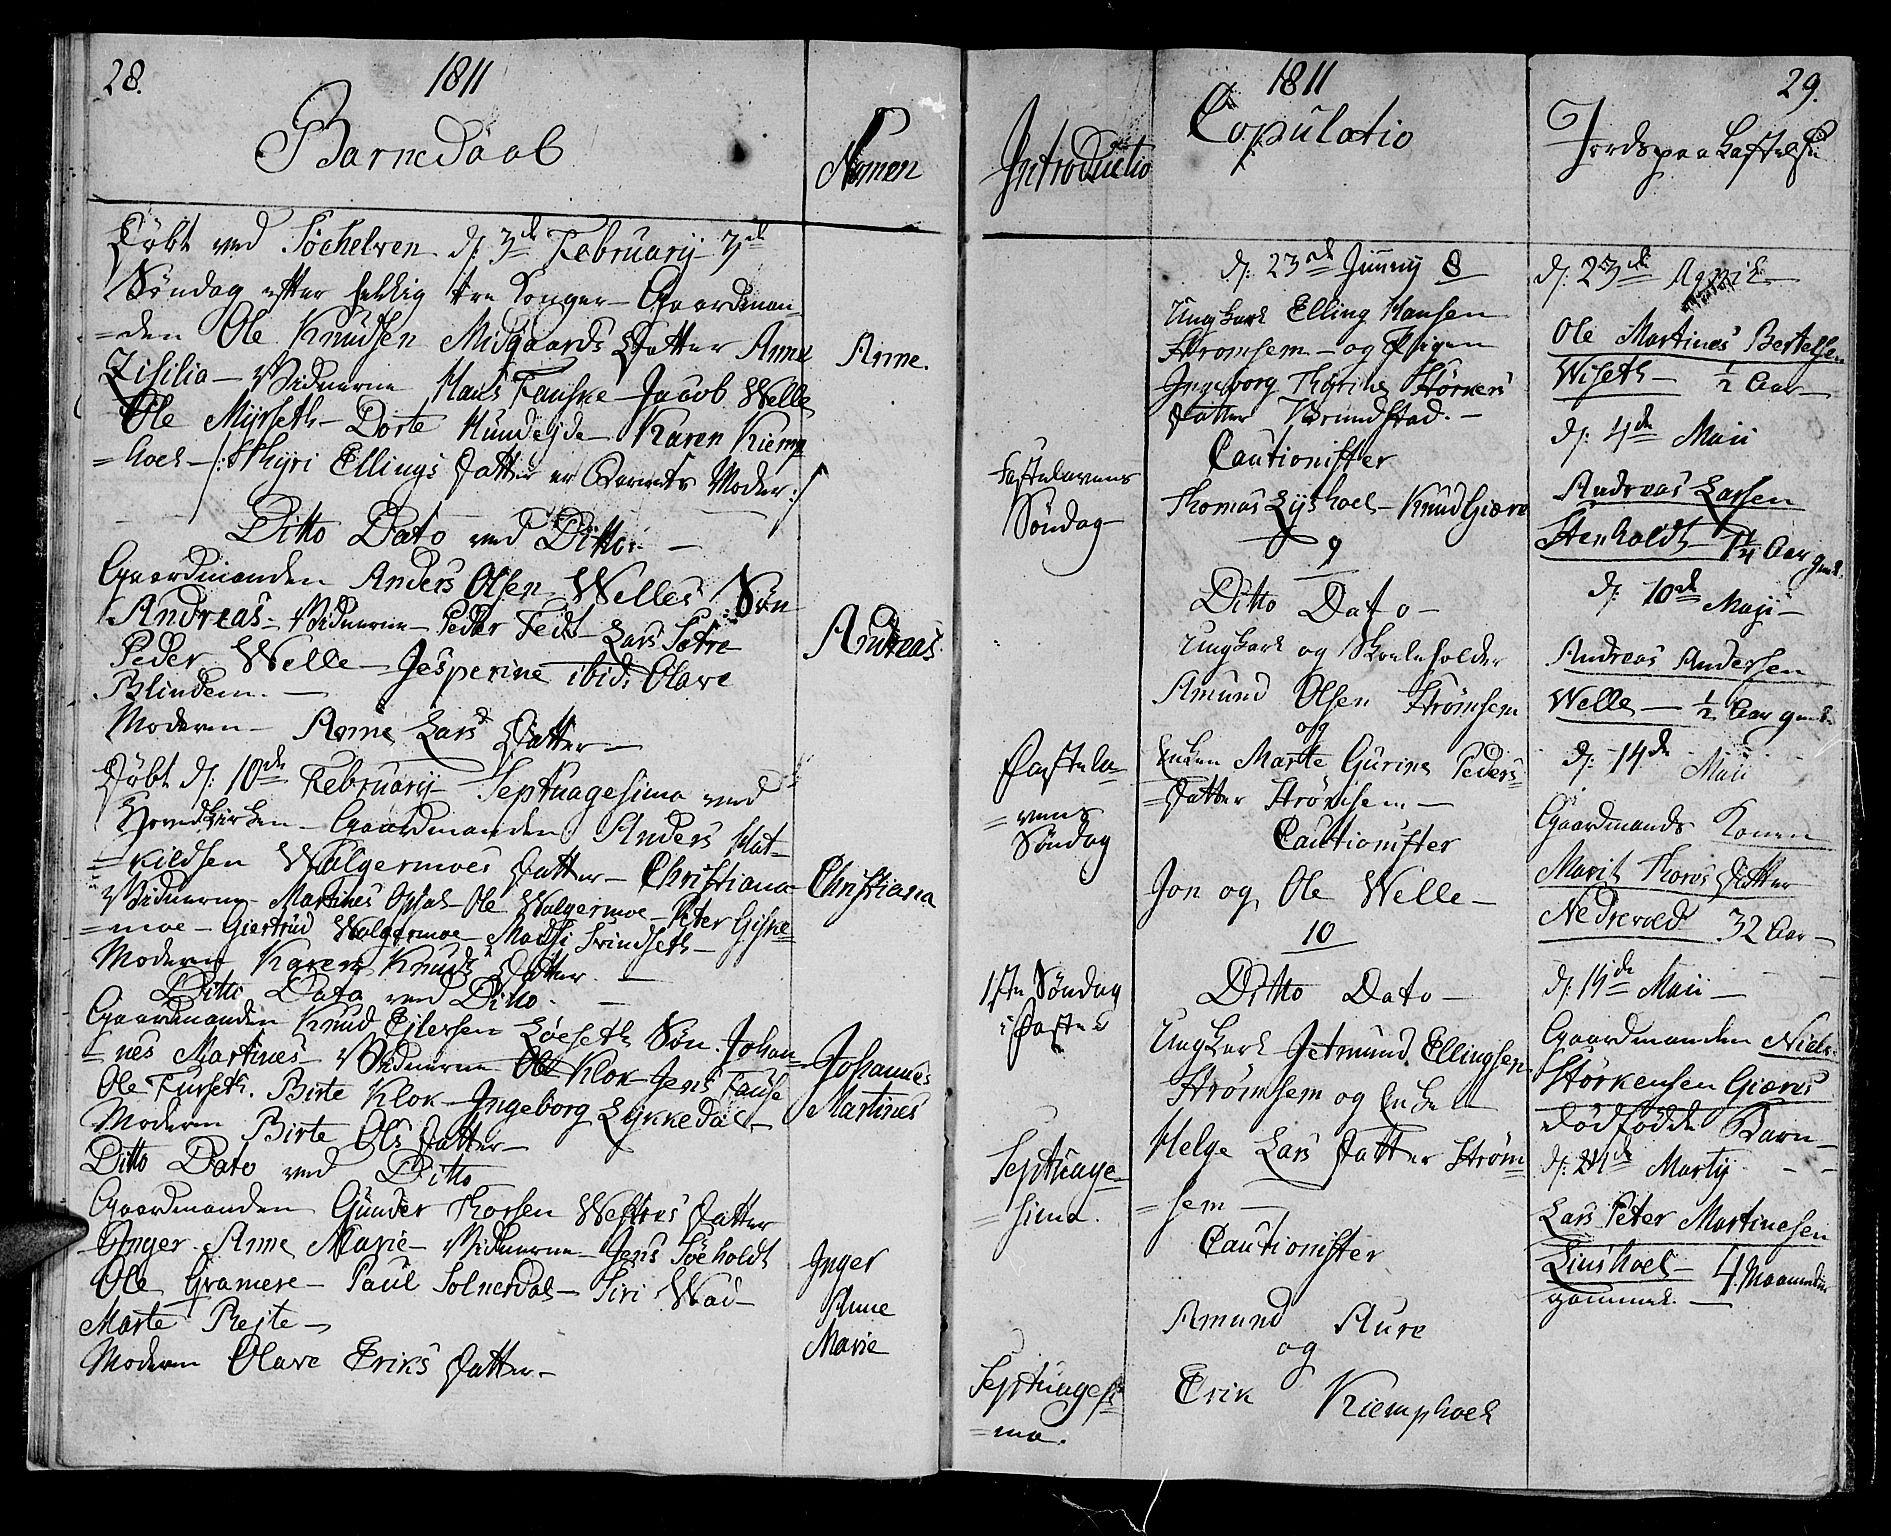 28.
1811
Barnedaab
Nomen
Døbt ved Søchelven d. 3de February 4de
Søndag efter hellig tre Konger - Gaardman=
=den Ole Knudsen Midgaards Datter Anne
Zisilia - Vidnerne Hans Fauske - Jacob Welle
Ole Myrseth - Dorte Hundejde - Karen Kiemp
=hoel - /: Thyri Ellings Datter er Barnets Moder :/
Anne.
Ditto Dato ved Ditto. -
Gaardmanden Anders Olsen Welles Søn
Andreas - Vidnerne - Peder Fedt - Lars Sætre
Peder Welle - Jesperine ibid: Olave
Blindem. -
Moderen - Anne Lars Datter -
Andreas.
Døbt d: 10de February Septuagesima ved
Hovedkirken - Gaardmanden Anders Kat=
=rildsen Walgermoes Datter - Christiana -
Vidnerne - Martines Opsal - Ole Walgermoe - Peter Giske=
=moe - Giertrud Walgermoe - Madsi Svindseth -
Moderen Karen Knuds Datter. -
Christiana
Ditto Dato ved Ditto. -
Gaardmanden Knud Eilersen Løeseth Søn Johan=
=nes Martines - Vidnerne Ole Klok - Jens Fauske
Ole Furseth. Birte Klok - Ingeborg Lykkedal -
Moderen Birte Ols Datter -
Johannes
Martines
Ditto Dato ved Ditto
Gaardmanden Gunder Thorsen Westres Datter
Inger Anne Marie - Vidnerne - Jens Søeholdt
Ole Gramere - Paul Solnerdal - Siri Wad -
Marte Rejte -
Moderen Olave Eriks Datter -
Inger
Anne
Marie
Introductio
Fastelavens
Søndag
Fastela=
=vens
Søndag
1ste Søndag
i Faste
Septuage=
=sima.
Septuagesi=
=ma.
1811
Copulatio
d: 23de Juny 8
Ungkarl Elling Hansen
Strømsem - og Pigen
Ingeborg Thyrine Størkers
Datter Brundstad. -
Cautionister
Thomas Lyshoel - Knud Giære
9
Ditto Dato -
Ungkarl og Skoleholder
Amund Olsen Strømsem
og
Enken Marte Gurine Peders=
=Datter Strømsem -
Cautionister
Jon og Ole Welle -
10
Ditto Dato -
Ungkarl Jetmund Ellingsen
Strømsem og Enken
Helge Lars Datter Strøm=
=sem -
Cautionister
Amund Aure
og
Erik Kiemphoel
29.
Jordspaakastelse
d: 23de April -
Ole Martines Bertelsen
Wiseth - 1/2 Aar -
d: 4de Maii
Andreas Larsen
Stenholdt 1 1/4 Aar gml.
d: 10de Maji -
Andreas Andersen
Welle - 1/2 Aar gml.
d: 14de Maii
Gaardmands Konen
Marit Thores Datter
Nedrevold 32 Aar -
d: 19de Maii -
Gaardmanden Niels
Størkersen Giæres
dødfødde Barn -
d: 24de Marty
Lars Peter Martinesen
Liushoel - 4 Maaneder
gammel. -